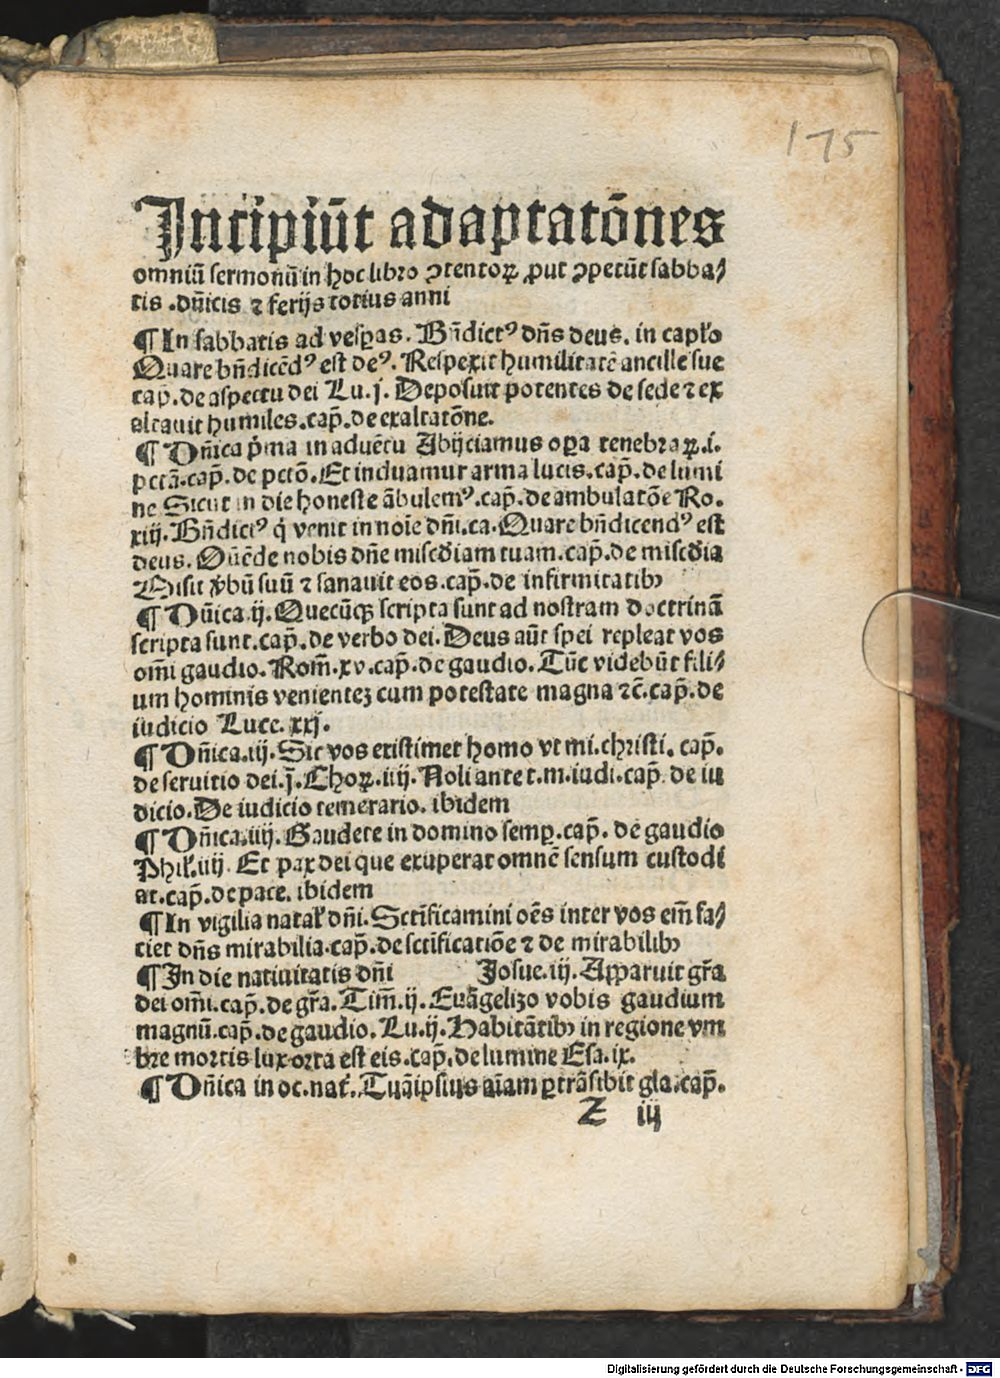 175
Incipiūt adaptatōnes
omniū sermonū in hoc libro ꝯtentoꝝ ꝓut ꝯpetūt sabba⸗
tis .dn̄icis ⁊ ferijs totius anni
¶ In sabbatis ad vesꝑas. Bn̄dictꝰ dn̄s deus. in capło
Quare bn̄dicēdꝰ est deꝰ. Respexit humilitatē ancille sue
cap̄. de aspectu dei Lu.j. Deposuit potentes de sede ⁊ ex
altauit humiles.cap̄.de exaltatōne.
¶ Dn̄ica p̄ma in aduētu Abijciamus oꝑa tenebraꝝ.i.
pctā.cap̄.de pctō.Et induamur arma lucis.cap̄.de lumi
ne Sicut in die honeste ābulemꝰ.cap̄.de ambulatōe Ro.
xiij.Bn̄dictꝰ q̇ venit in noīe dn̄i.ca.Quare bn̄dicendꝰ est
deus. Ostēde nobis dn̄e misc̄diam tuam.cap̄.de misc̄dia
Misit v̄bū suū ⁊ sanauit eos.cap̄.de infirmitatibꝫ
¶ Dn̄ica.ij.Quecūqꝫ scripta sunt ad nostram doctrinā
scripta sunt.cap̄.de verbo dei.Deus aūt spei repleat vos
omī gaudio.Rom̄.xv.cap̄.de gaudio.Tūc videbūt fili⸗
um hominis venienteꝫ cum potestate magna ⁊c̄.cap̄.de
iudicio Luce.xxj.
¶ Dn̄ica.iij.Sic vos existimet homo vt mi.christi.cap̄.
de seruitio dei.j.Choꝝ.iiij.Noli ante t.m.iudi.cap̄.de iu
dicio.De iudicio temerario.ibidem
¶ Dn̄ica.iiij.Gaudete in domino semꝑ.cap̄.de gaudio
Phił.iiij.Et pax dei que exuperat omnē sensum custodi
at.cap̄.de pace.ibidem
¶ In vigilia natał dn̄i.Sctīficamini oēs inter vos em̄ fa⸗
ciet dn̄s mirabilia.cap̄.de sctīficatiōe ⁊ de mirabilibꝫ
¶ In die natiuitatis dn̄i Iosue.iij.Apparuit gr̄a
dei omī.cap̄.de gr̄a.Tim̄.ij.Euāgelizo vobis gaudium
magnū.cap̄.de gaudio.Lu.ij.Habitātibꝫ in regione vm
bre mortis lux orta est eis.cap̄.de lumine Esa.ix.
¶ Dn̄ica in oc.nat̄.Tuā ipsius aīam ꝑtrāsibit gla.cap̄.
Z iij
Digitalisierung gefördert durch die Deutsche Forschungsgemeinschaft - DFG